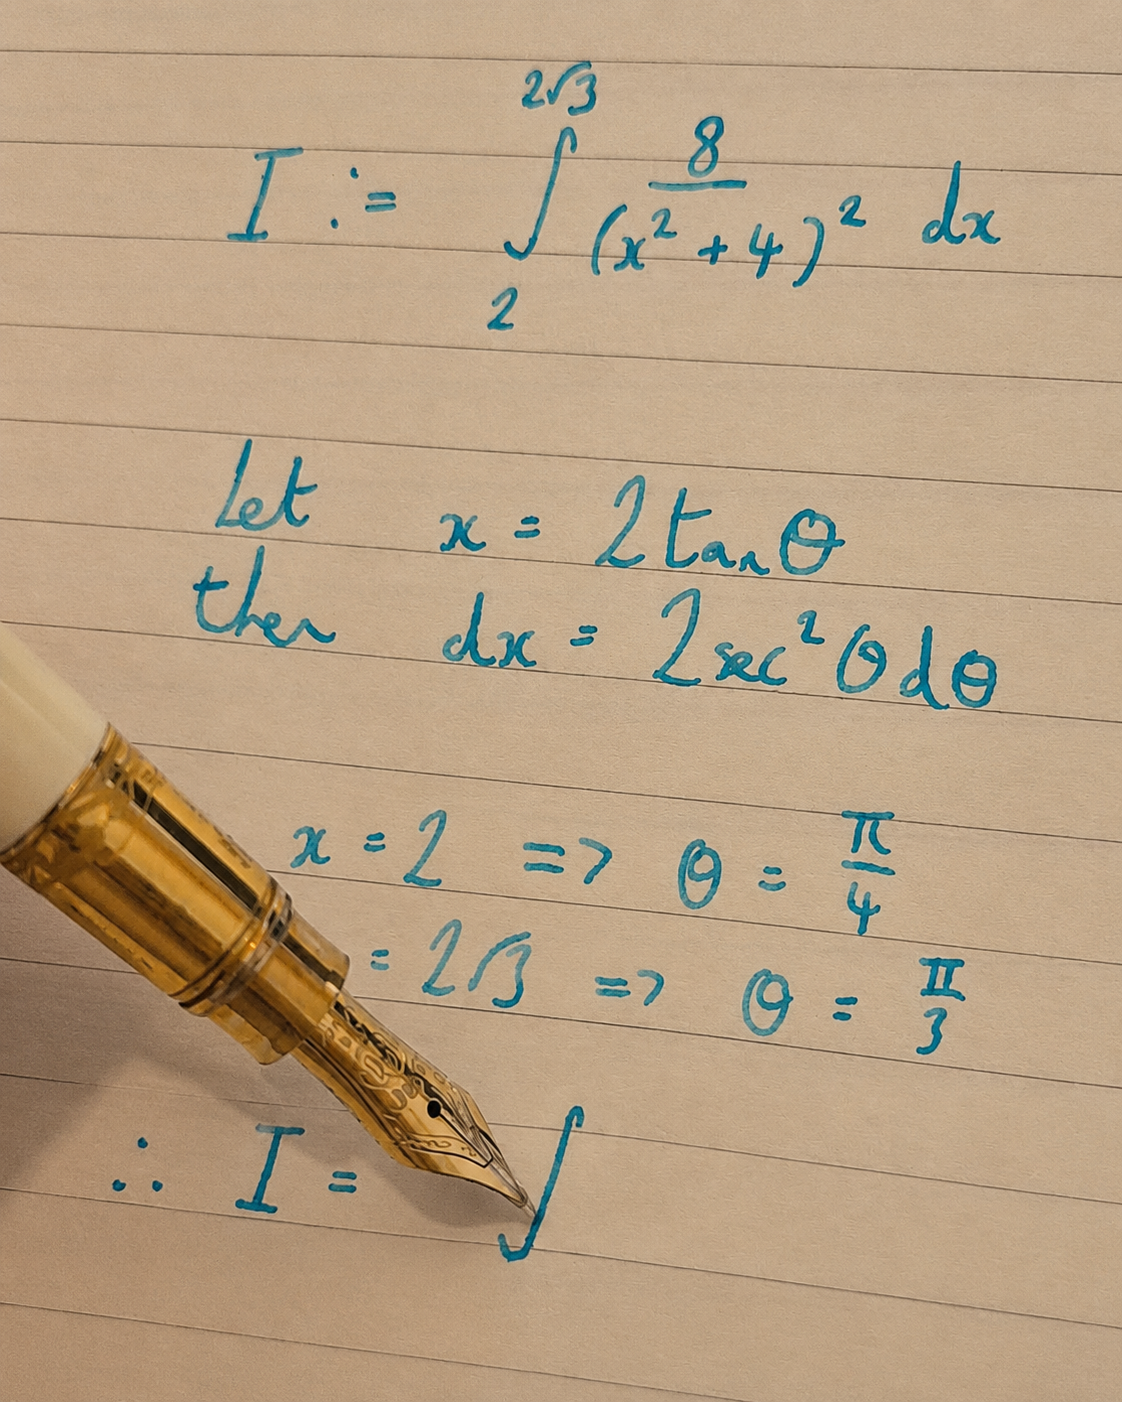 I := ∫_2^{2√3} 8/(x² + 4)² dx
Let x = 2tanθ
then dx = 2sec²θdθ
x = 2 => θ = π/4
= 2√3 => θ = π/3
∴ I = ∫